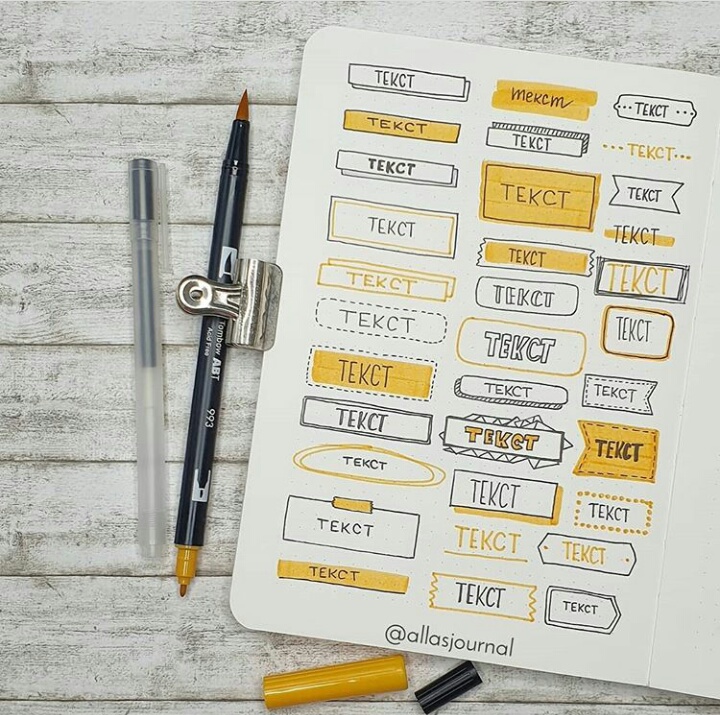 ТЕКСТ
ТЕКСТ
ТЕКСТ
ТЕКСТ
ТЕКСТ
ТЕКСТ
ТЕКСТ
ТЕКСТ
ТЕКСТ
ТЕКСТ
ТЕКСТ
текст
ТЕКСТ
ТЕКСТ
ТЕКСТ
ТЕКСТ
ТЕКСТ
ТЕКСТ
ТЕКСТ
ТЕКСТ
ТЕКСТ
ТЕКСТ
ТЕКСТ
ТЕКСТ
ТЕКСТ
ТЕКСТ
ТЕКСТ
ТЕКСТ
ТЕКСТ
ТЕКСТ
ТЕКСТ
ТЕКСТ
ТЕКСТ
@allasjournal
Tombow ABT 993
Acid Free